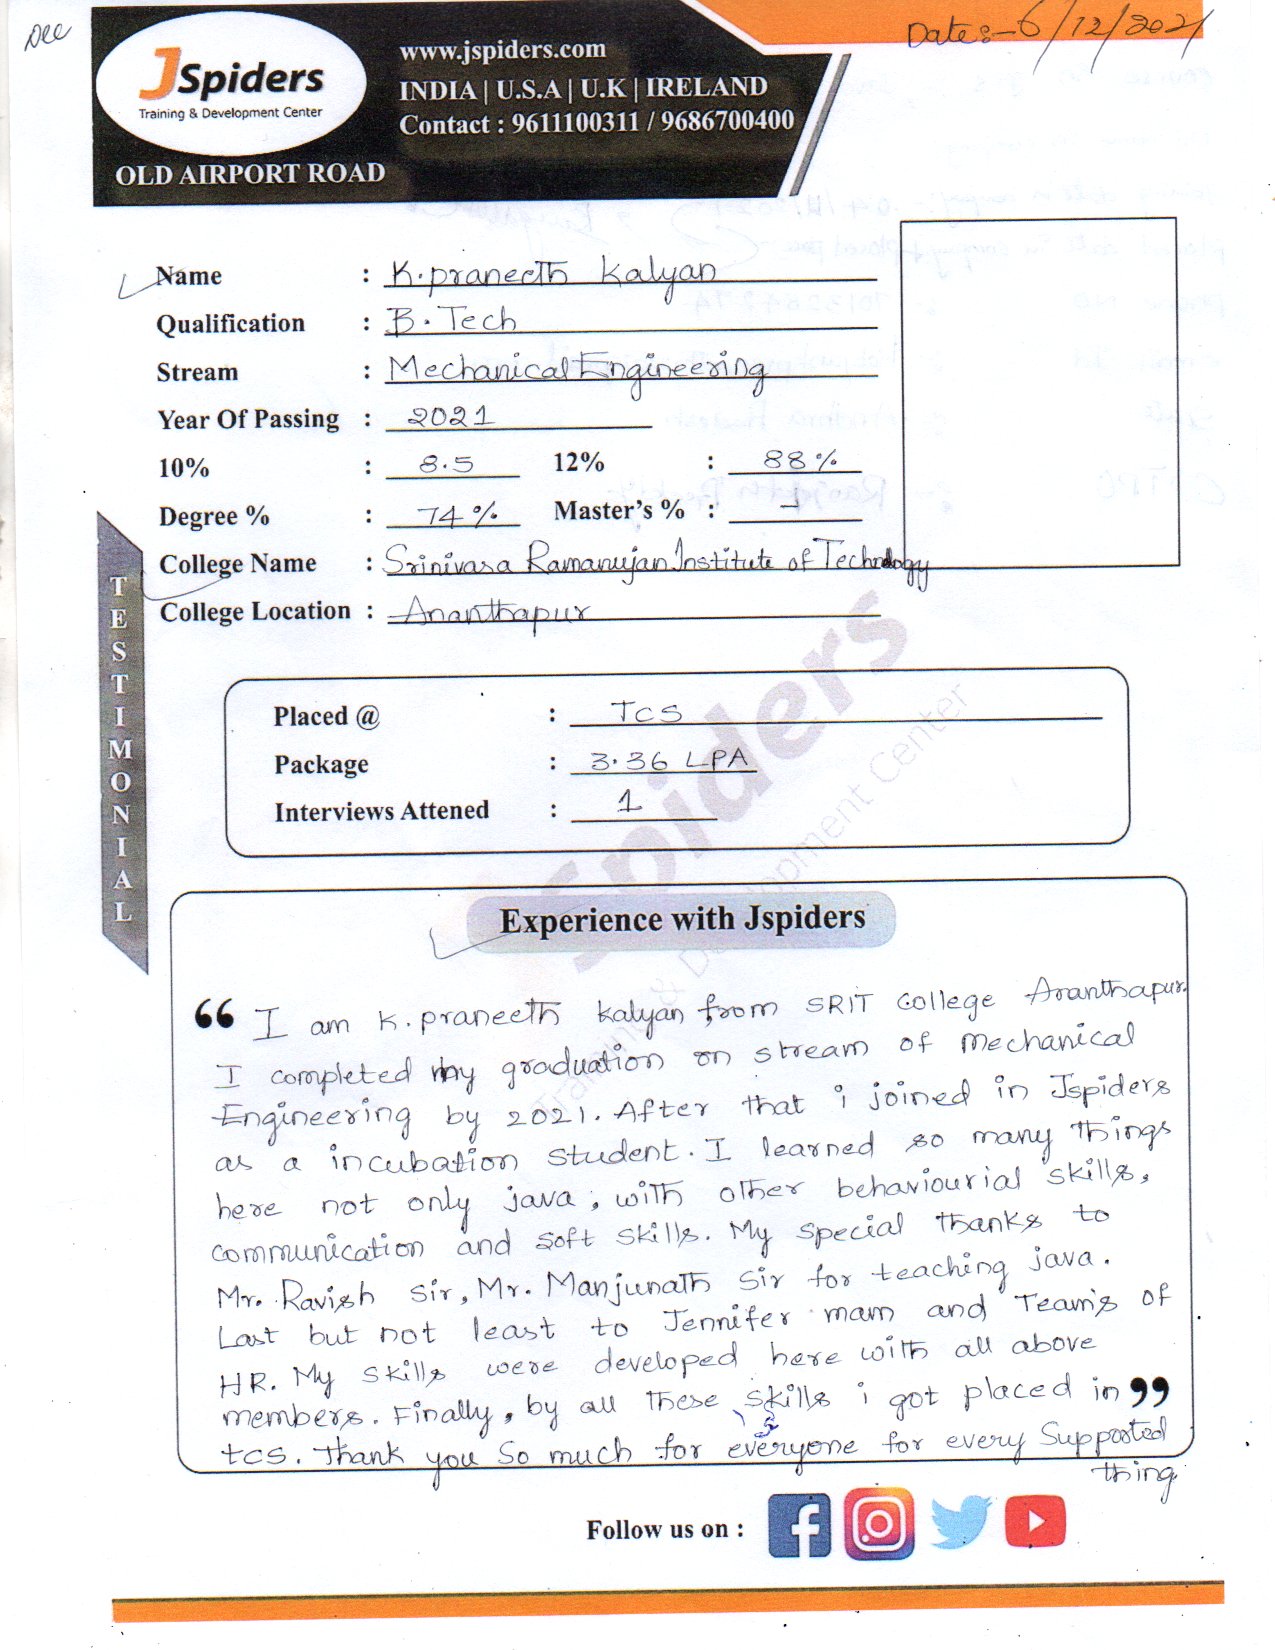 Dec
Date:- 6/12/2021
JSpiders
Training & Development Center
OLD AIRPORT ROAD
www.jspiders.com
INDIA | U.S.A | U.K | IRELAND
Contact : 9611100311 / 9686700400
Name : K.praneeth Kalyan
Qualification : B.Tech
Stream : Mechanical Engineering
Year Of Passing : 2021
10% : 8.5 12% : 88%
Degree % : 74% Master's % : -
College Name : Srinivasa Ramanujan Institute of Technology
College Location : Ananthapur
TESTIMONIAL
Placed @ : TCS
Package : 3.36 LPA
Interviews Attened : 1
Spiders
& Development Center
Experience with Jspiders
“ I am K.praneeth Kalyan from SRIT college Ananthapur.
I completed my graduation on stream of mechanical
Engineering by 2021. After that i joined in Jspiders
as a incubation student. I learned so many things
here not only java, with other behaviourial skills,
communication and soft skills. My special thanks to
Mr. Ravish Sir, Mr. Manjunath Sir for teaching java.
Last but not least to Jennifer mam and Team's of
HR. My skills were developed here with all above
members. Finally, by all these skills i got placed in ”
tcs. Thank you so much for everyone for every supported
thing
Follow us on :